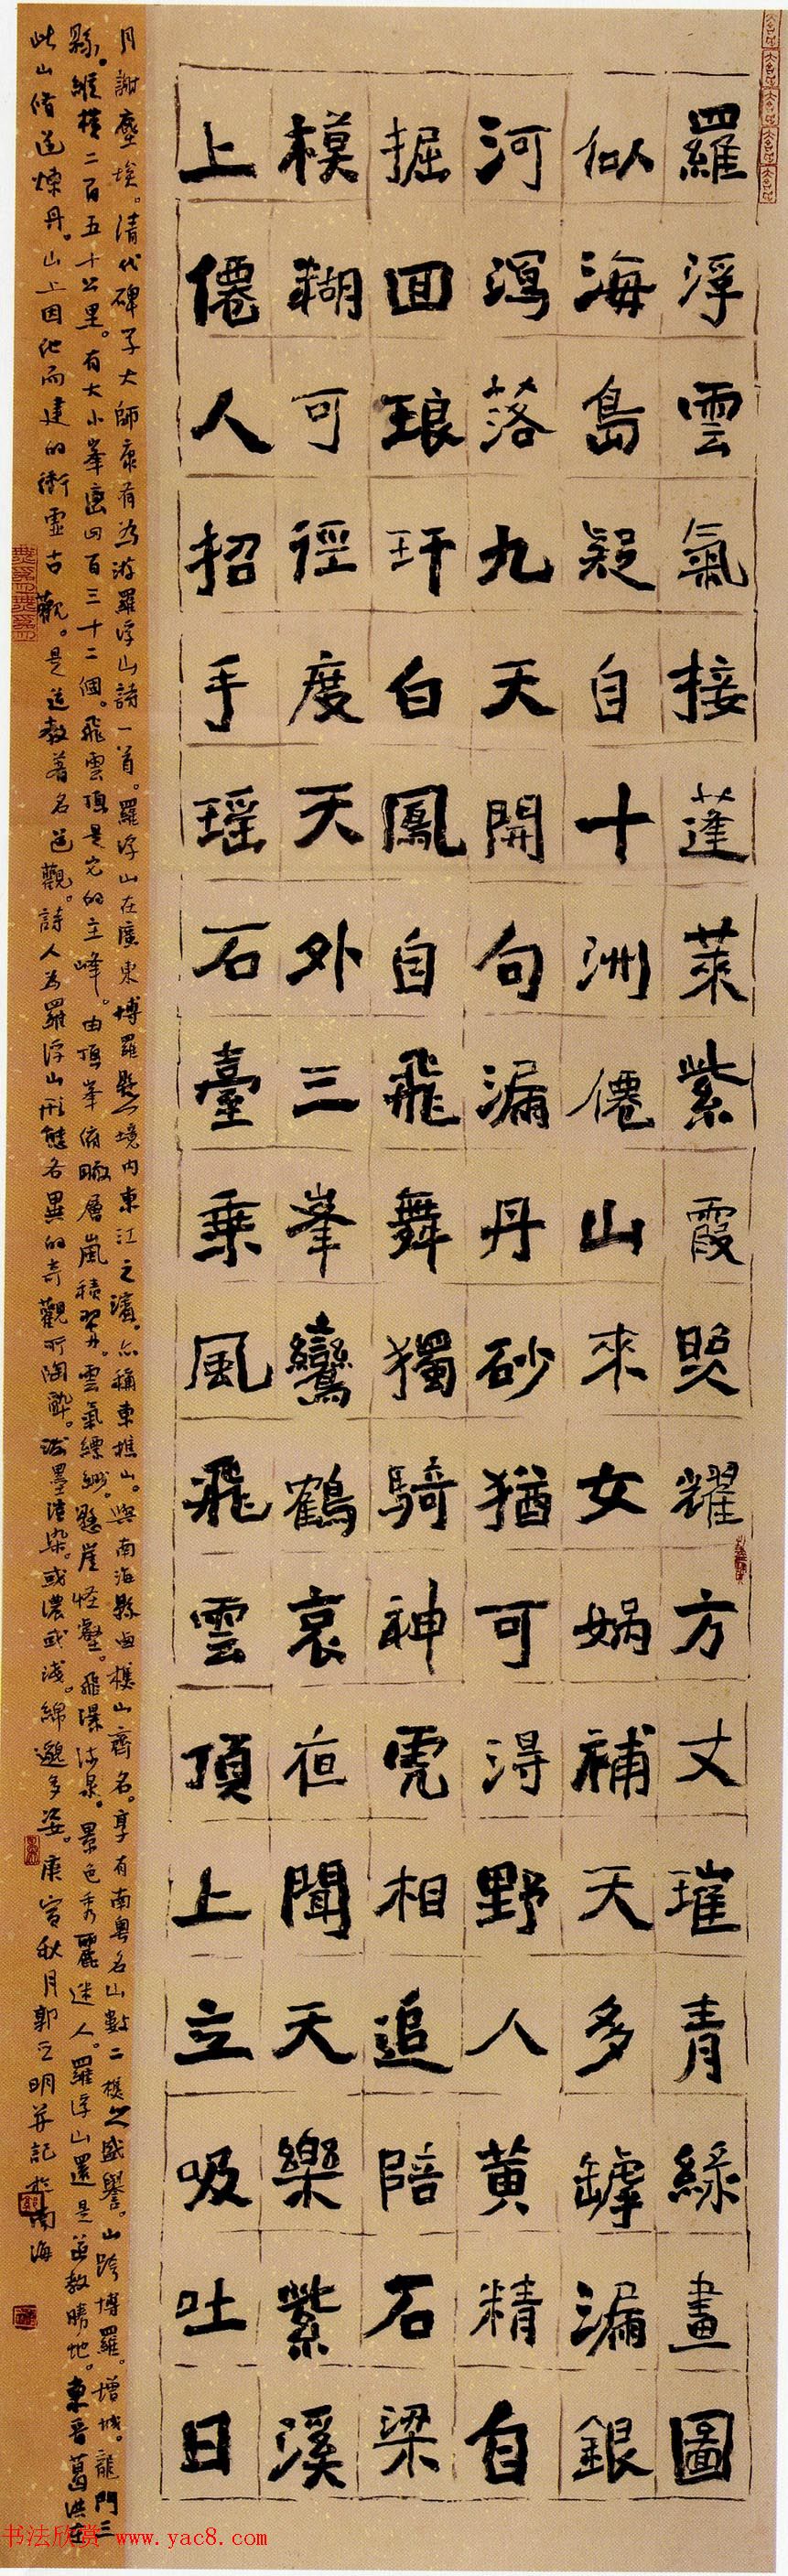 羅浮雲氣接蓬萊紫霞照耀方丈璀青綠畫圖
似海島疑自十洲僊山來女媧補天多罅漏銀
河瀉落九天開句漏丹砂猶可得野人黃精自
掘回琅玕白鳳自飛舞獨騎神虎相追陪石梁
模糊可徑度天外三峯鸞鶴哀夜聞天樂紫溪
上僊人招手瑶石臺乘風飛雲頂上立吸吐日
月謝塵埃。清代碑學大師康有為游羅浮山詩一首。羅浮山在廣東博羅縣境内東江之濱。亦稱東樵山。與南海縣西樵山齊名。享有南粵名山數二樵之盛譽。山跨博羅。增城。龍門三
縣。縱橫二百五十公里。有大小峯巒四百三十二個。飛雲頂是它的主峰。由頂峯俯瞰層嵐積翠。雲氣縹緲。懸崖怪壑。飛瀑流泉。景色秀麗迷人。羅浮山還是道教勝地。東晉葛洪在
此山脩道煉丹。山上因他而建的衝虛古觀。是道教著名道觀。詩人為羅浮山形態各異的奇觀所陶醉。潑墨渲染。或濃或淺。綿邈多姿。庚寅秋月郭亞明并記於南海
书法欣赏 www.yac8.com